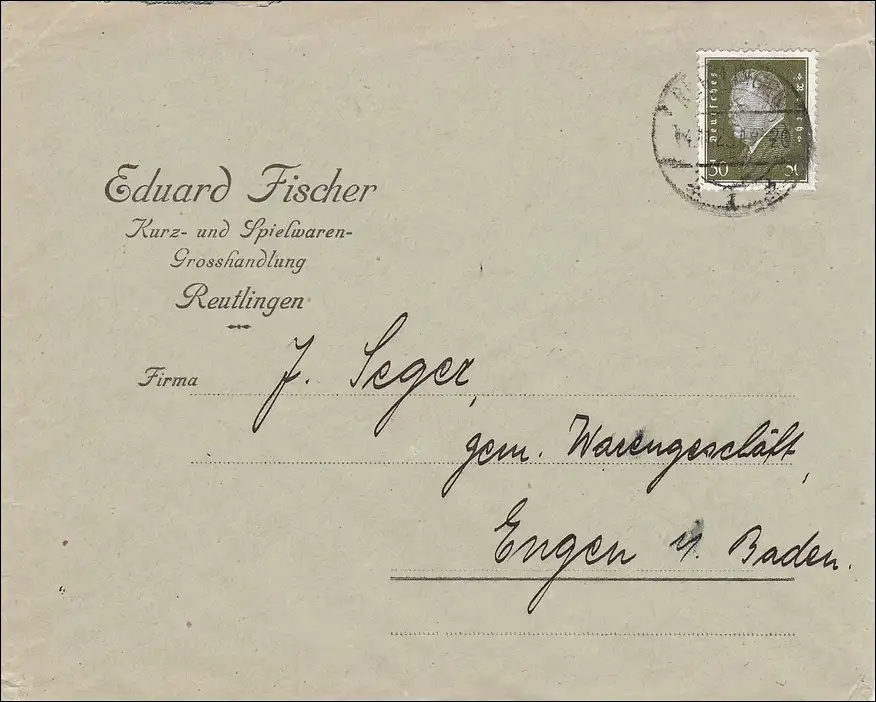 Eduard Fischer
Kurz- und Spielwaren-
Grosshandlung
Reutlingen
Deutsches Reich
30 30
REUTLINGEN
1
Firma J. Seger,
gem. Warengeschäft,
Engen i/. Baden.